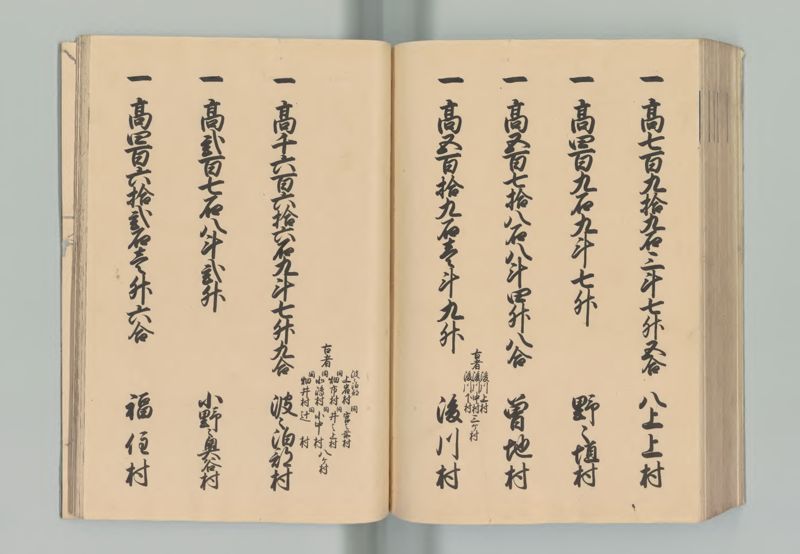 一 高七百九拾九石三斗七升五合 八上上村
一 高四百九石九斗七升 野々垣村
一 高五百七拾八石八斗四升八合 曽地村
一 高五百拾九石壱斗九升 後川村
古者
後川上村
後川中村 三ヶ村
後川下村
一 高千六百六拾六石九斗七升九合 波々伯部村
古者
上宿村
畑市村 同井ノ上村
同小中村 八ヶ村
同畑井村 同辻村
一 高弐百七石八斗弐升 小野奥谷村
一 高四百六拾弐石壱斗六合 福住村